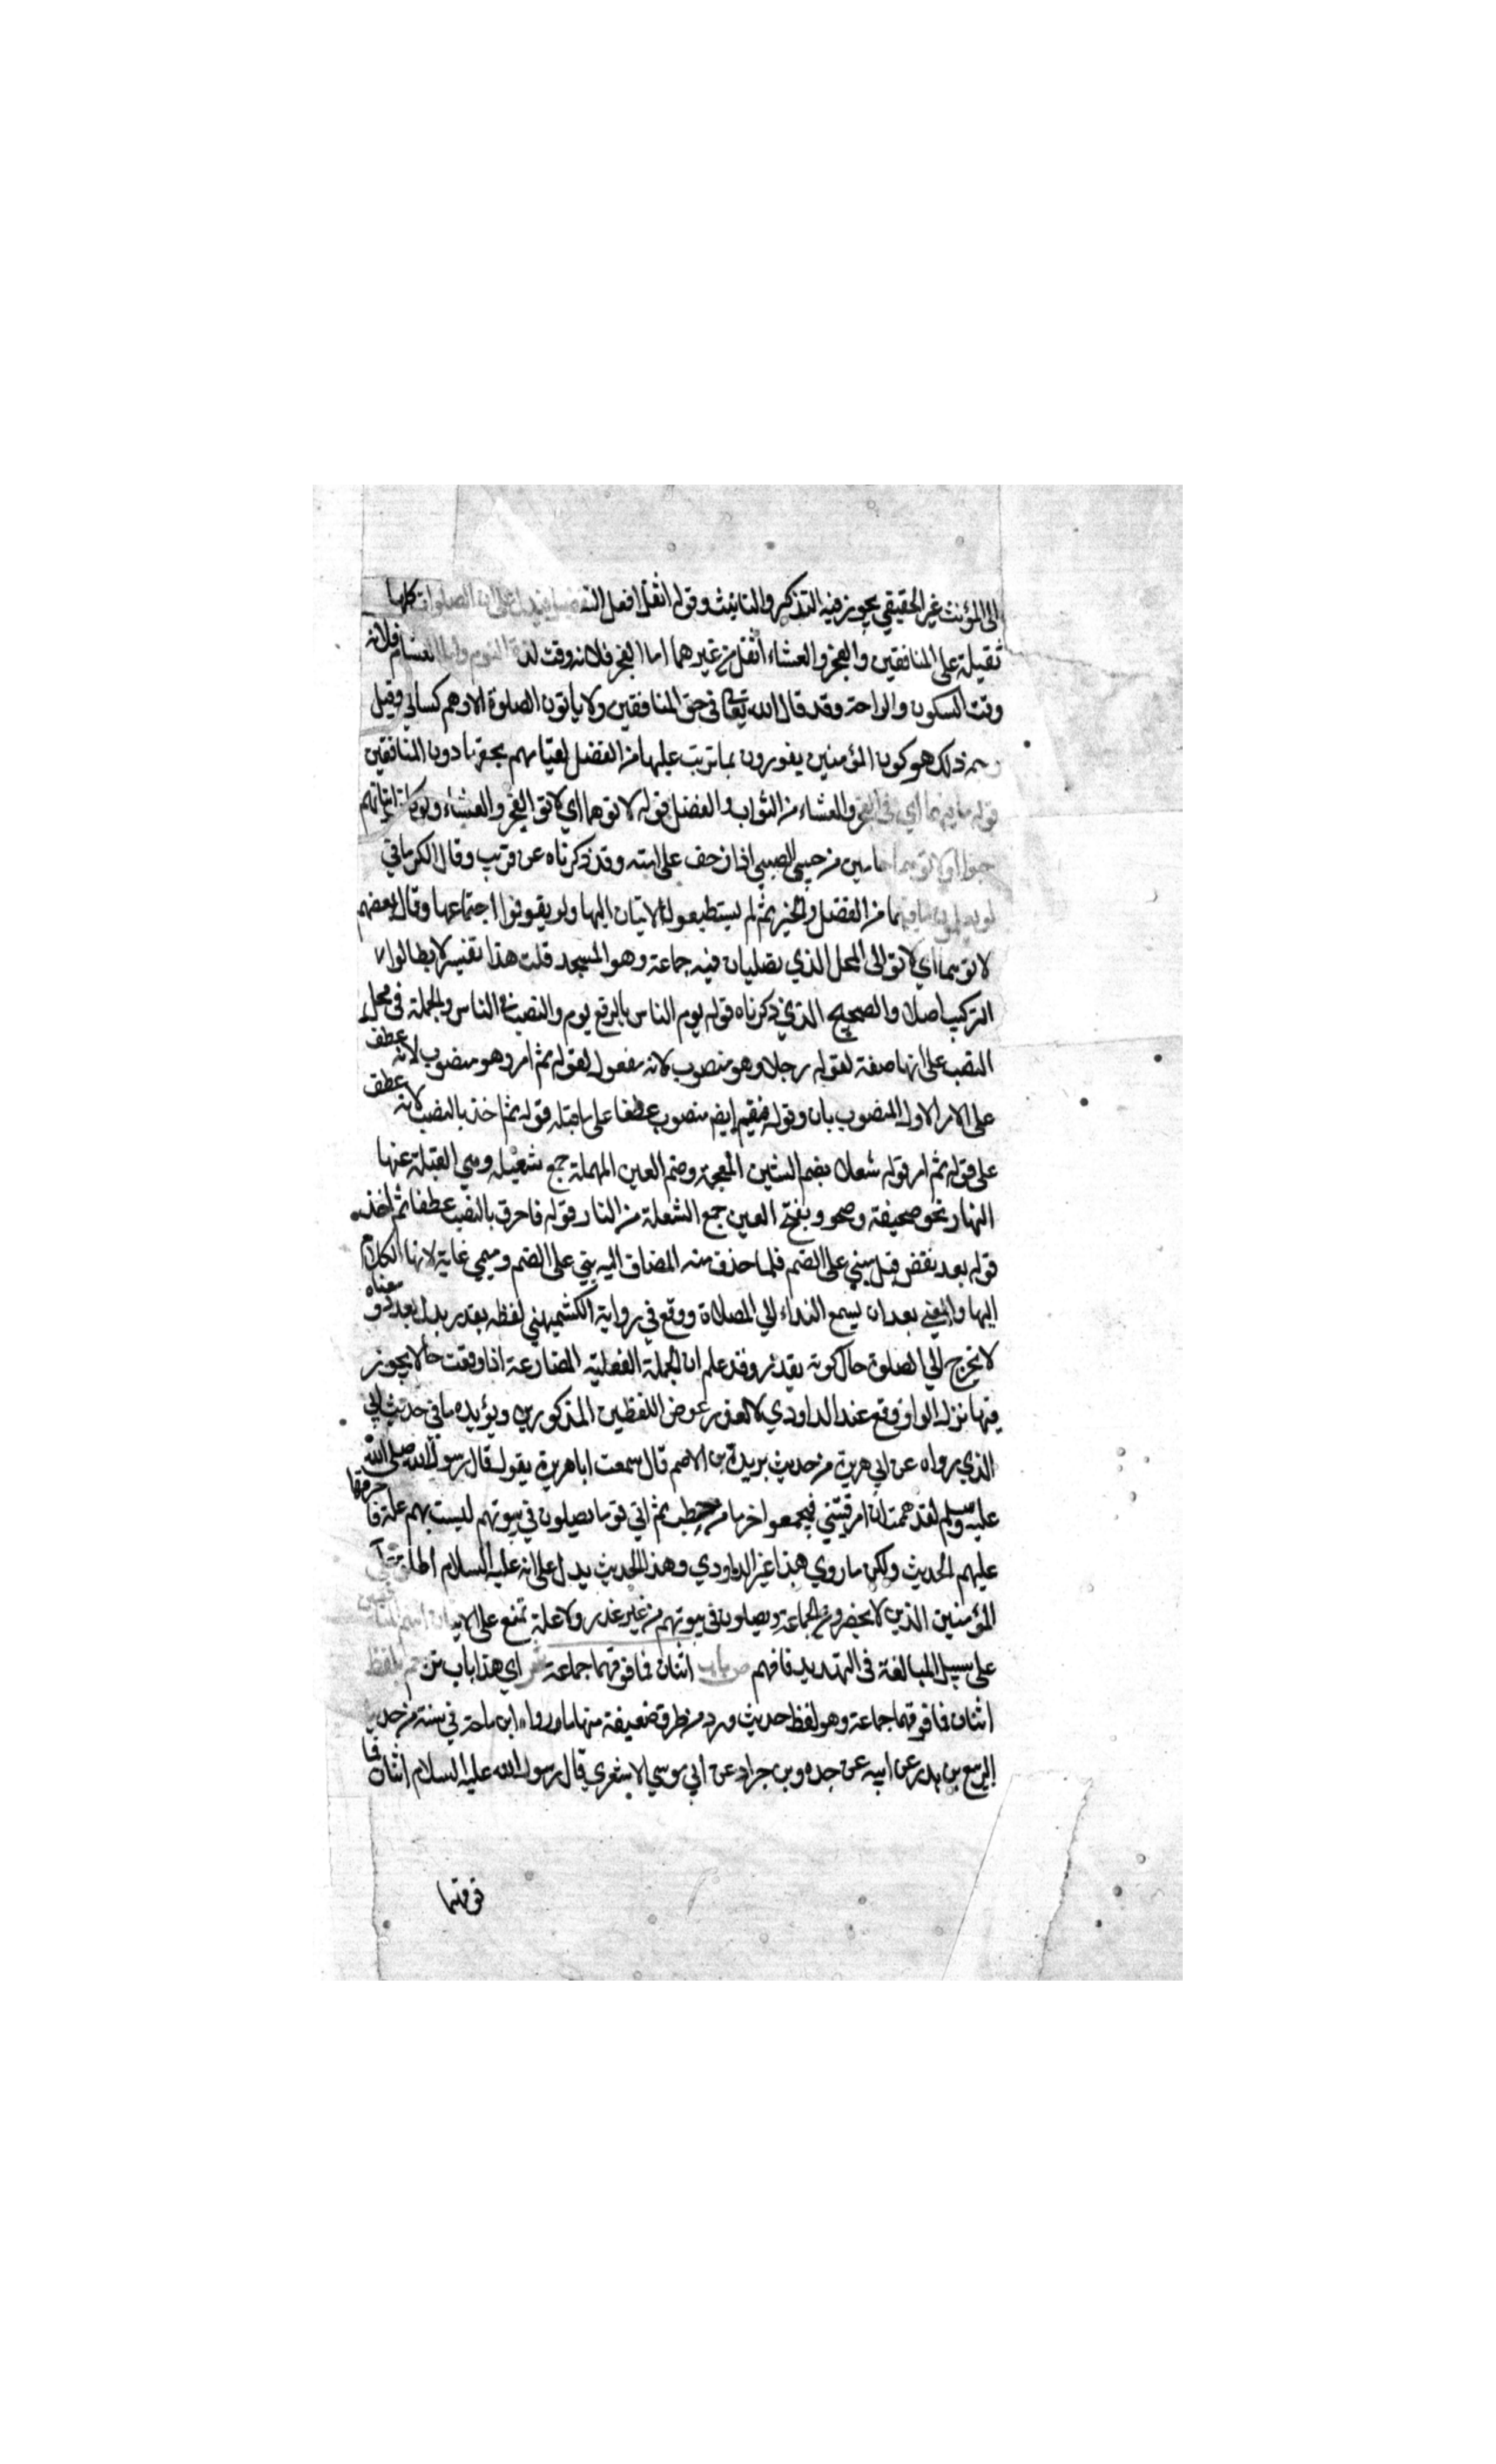 الى المؤنث غير الحقيقي يجوز فيه التذكير والتانيث وقوله اثقل افعل التفضيل فيدل على ان الصلوات كلها
ثقيلة على المنافقين والفجر والعشاء اثقل من غيرهما اما الفجر فلانه وقت لذة النوم واما العشاء فلانه
وقت السكون والراحة وقد قال الله تعالى في حق المنافقين ولا ياتون الصلوة الا وهم كسالى وقيل
وجه ذلك هو كون المؤمنين يفوزون بما ترتب عليها من الفضل لقيامهم بحقها دون المنافقين
قوله ما فيهما اي في الفجر والعشاء من الثواب والفضل قوله لاتوهما اي لاتوا الفجر والعشاء ولو كان اتيانهم
حبوا اي لاتوهما حابين من حبى الصبي اذا زحف على استه وقد ذكرناه عن قريب وقال الكرماني
لو يعلمون ما فيهما من الفضل والخير ثم لم يستطيعوا الاتيان اليها ولو يفوتوا اجتماعها وقال بعضهم
لاتوهما اي لاتوا الى المحل الذي تصليان فيه جماعة وهو المسجد قلت هذا تفسير لا يطالوا
التركيب اصلا والصحيح الذي ذكرناه قوله يوم الناس بالرفع يوم والنصب في الناس والجملة في محل
النصب على انها صفة لقوله رجلا وهو منصوب لانه مفعول لقوله ثم امر وهو منصوب لانه عطف
على الامر الاول المنصوب بان وقوله فيقيم ايضم منصوب عطفا على ما قبله قوله ثم اخذ بالنصب لانه عطف
على قوله ثم امر قوله شعلا بضم الشين المعجمة وضم العين المهملة جمع شعيلة وهي الفتيلة عنها
النهار نحو صحيفة وصحو وبفتح العين جمع الشعلة من النار قوله فاحرق بالنصب عطفا ثم اخذ
قوله بعد نقض قبل مبني على الضم فلما حذف منه المضاف اليه بني على الضم وسمي غاية لانها الكلام
اليها والمعنى بعد ان يسمع النداء الي المصلاة ووقع في رواية الكشميهني لفظه يقدر بدل بعد ومعناه
لا يخرج الي الصلوة حال كونه يقدر وقد علم ان الجملة الفعلية المضارعة اذا وقعت حالا يجوز
فيها نزل الواو ووقع عند الداودي لا لعذر عوض اللفظين المذكورين ويؤيده ما في حديث ابي
الذي رواه عن ابي هريرة من حديث بريدة بن الاصم قال سمعت ابا هريرة يقول قال رسول الله صلى الله
عليه وسلم لقد هممت ان امر فتيتي فيجمعوا خرما من حطب ثم اتي قوما يصلون في بيوتهم ليست بهم علة فاحرقها
عليهم الحديث ولكن ما روي هذا غير الداودي وهذا الحديث يدل على انه عليه السلام اطلق على
المؤمنين الذين لا يحضرون الجماعة ويصلون في بيوتهم من غير عذر ولا علة تمنع على الاتيان اسم المنافقين
على سبيل المبالغة في التهديد فافهم ص باب اثنان فما فوقهما جماعة ش اي هذا باب ترجم بلفظ
اثنان فما فوقهما جماعة وهو لفظ حديث ورد من طرق ضعيفة منها ما رواه ابن ماجة في سننه من حديث
الربيع بن بدر عن ابيه عن جده وبن جراد عن ابي موسي الاشعري قال رسول الله عليه السلام اثنان فما
فوقهما